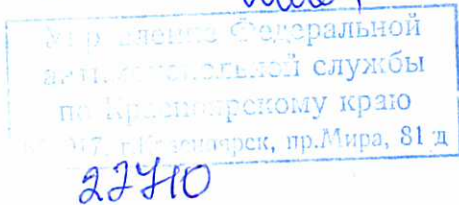 Управление Федеральной
антимонопольной службы
по Красноярскому краю
г.Красноярск, пр.Мира, 81 д
22410